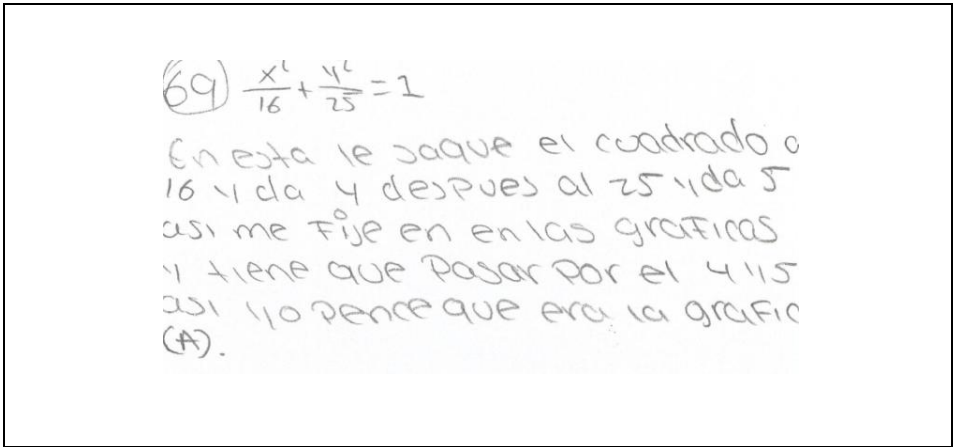 69) x²/16 + y²/25 = 1
En esta le saque el cuadrado a
16 y da 4 despues al 25 y da 5
asi me Fije en en las graficas
y tiene que Pasar Por el 4 y 5
asi yo pence que era la grafic
(A).